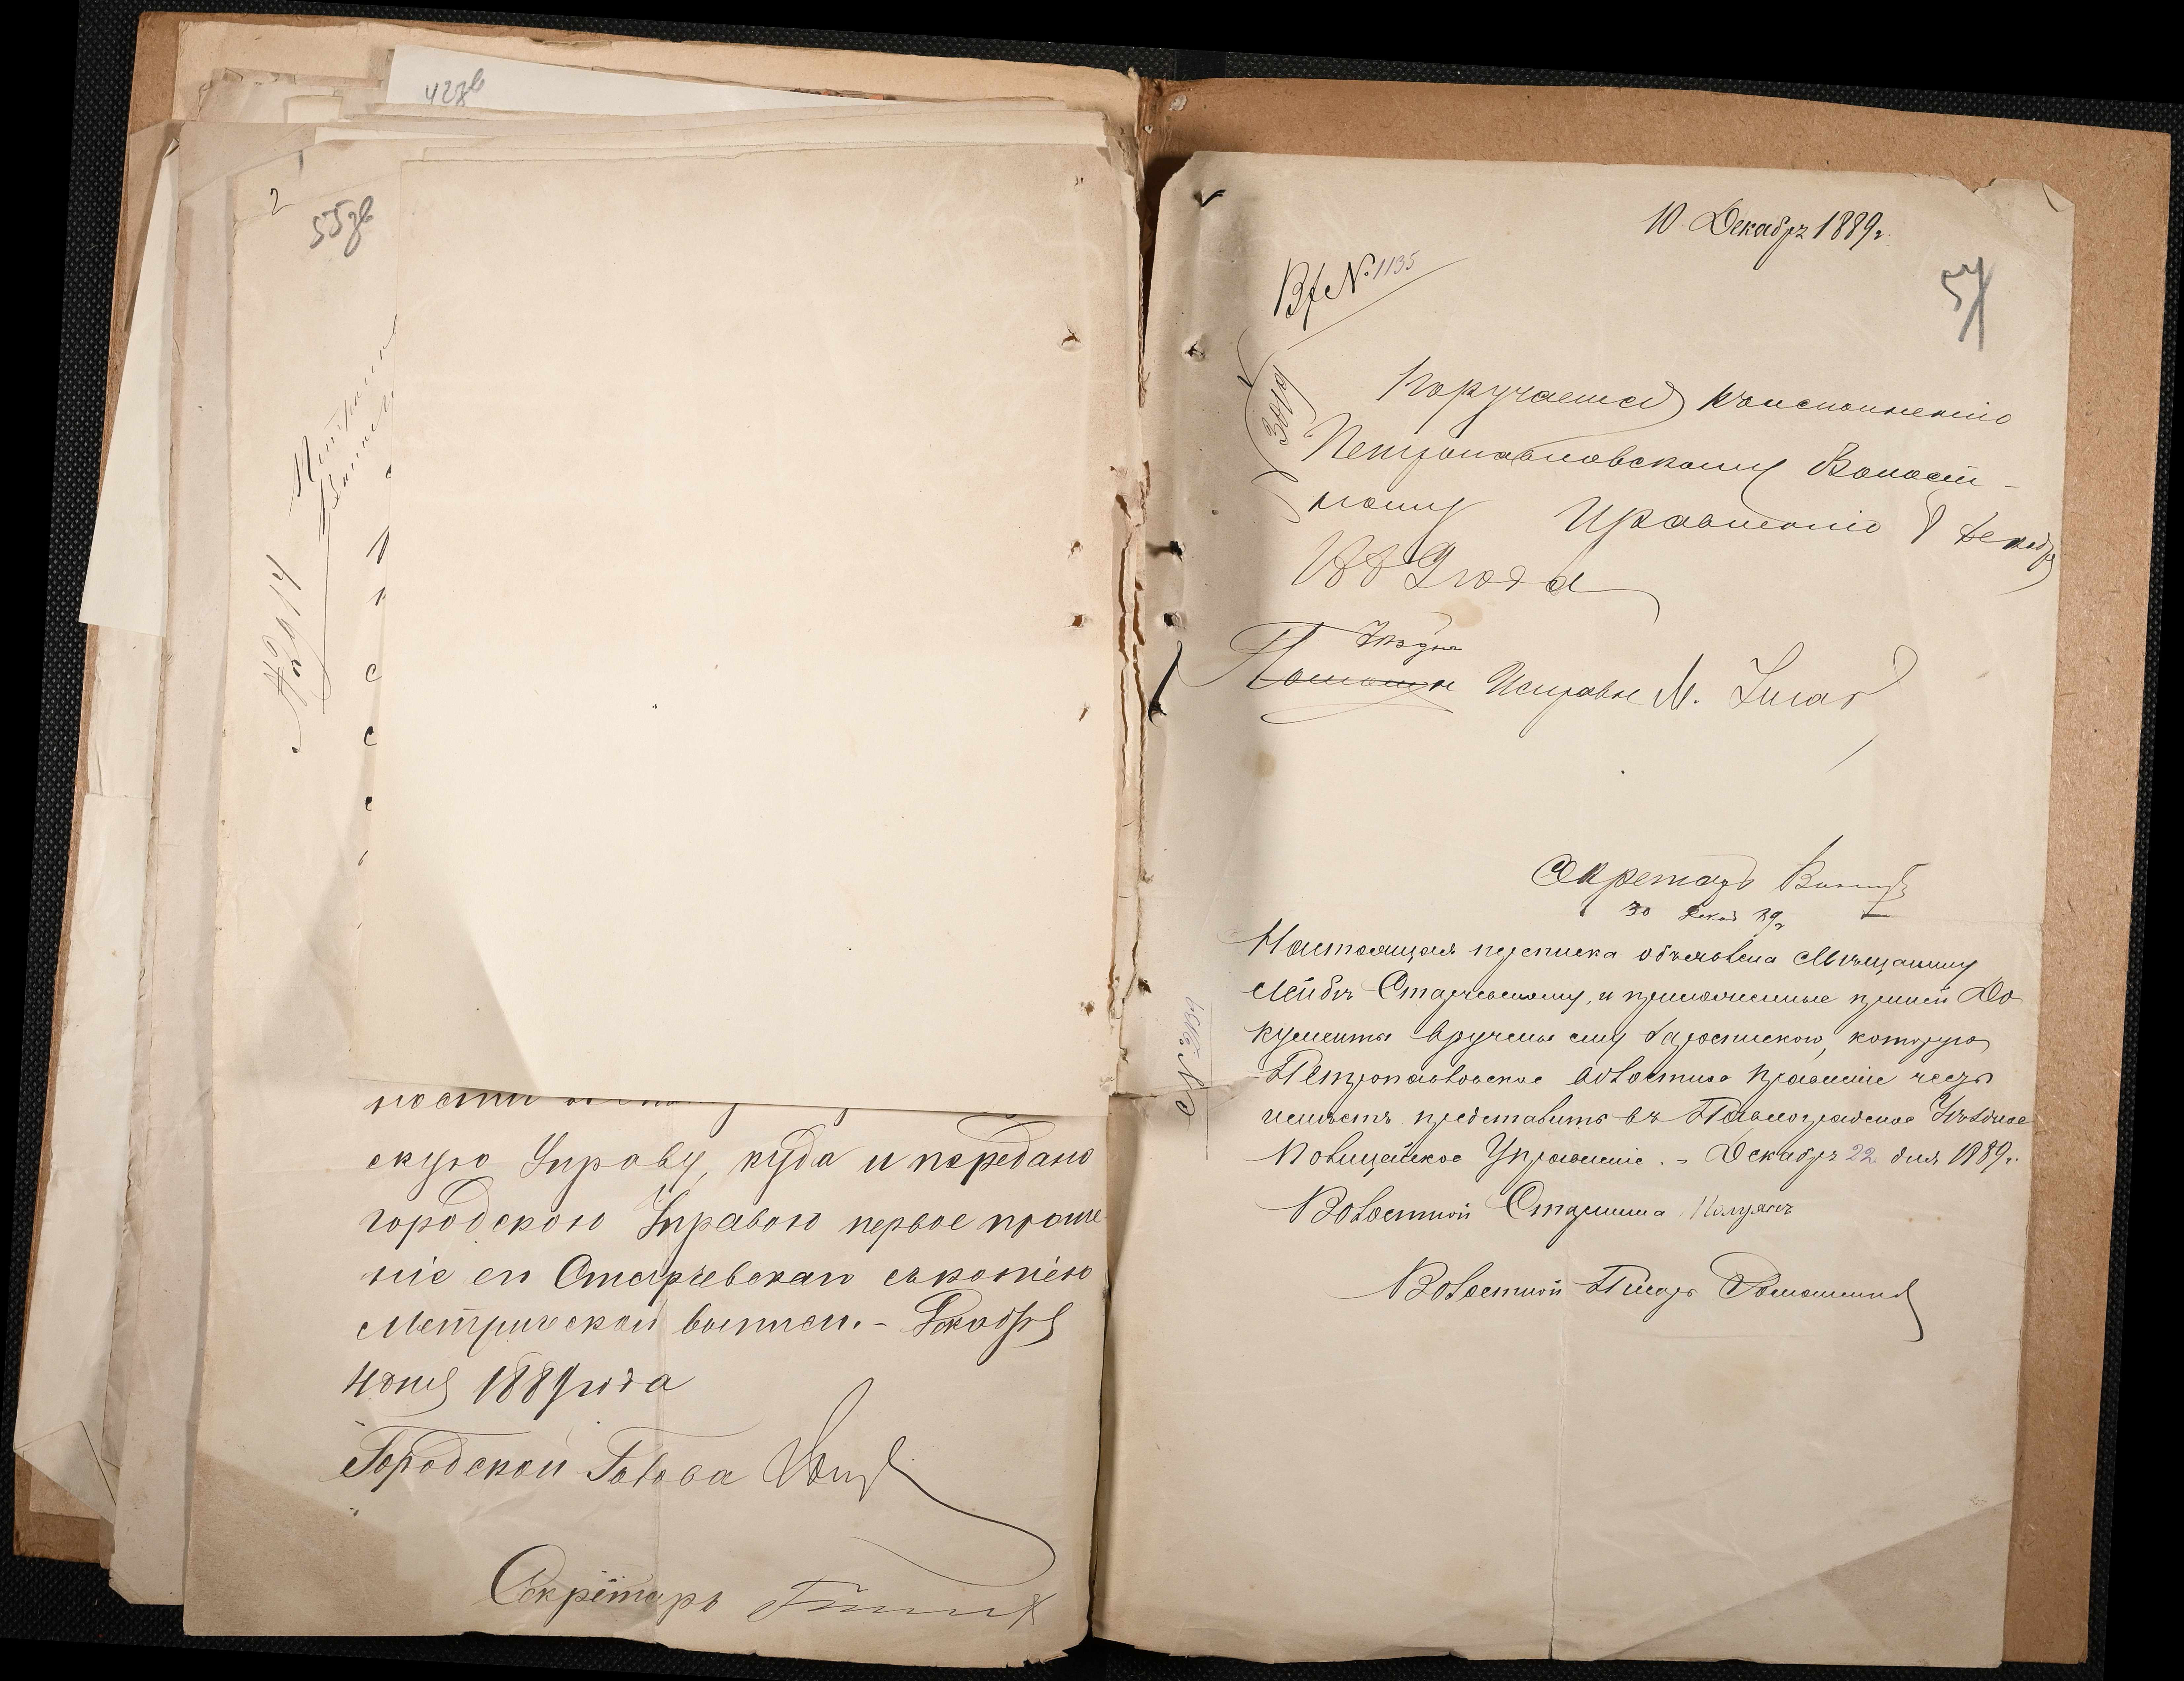 42зв
2
55зв
№ 2014
ности
скую Управу, куда и передано
городскою Управою первое проше-
ніе его Старчевскаго съ копіею
Метрической выписи. - Декабря
4 дня 1889 года
Городской Голова
Секретарь
10. Декабрz 1889г.
57
Вх № 1135
Поручается къ исполненію
Петропавловскому Волост-
ному Правленію 8 Декабр
1889 года
Уѣздн
Помощн Исправн М.
Секретарь
30 Декаб 89г
Настоящая переписка объявлена Мѣщанину
Лейбѣ Старчевскому, и приложенные при ней До
кументы вручены ему съ роспискою, которую
Петропавловское волостное Правленіе честь
имѣетъ представить въ Павлоградское Уѣздное
Полицейское Управленіе. - Декабрz 22 дня 1889г.
Волостной Старшина
Волостной Писарь